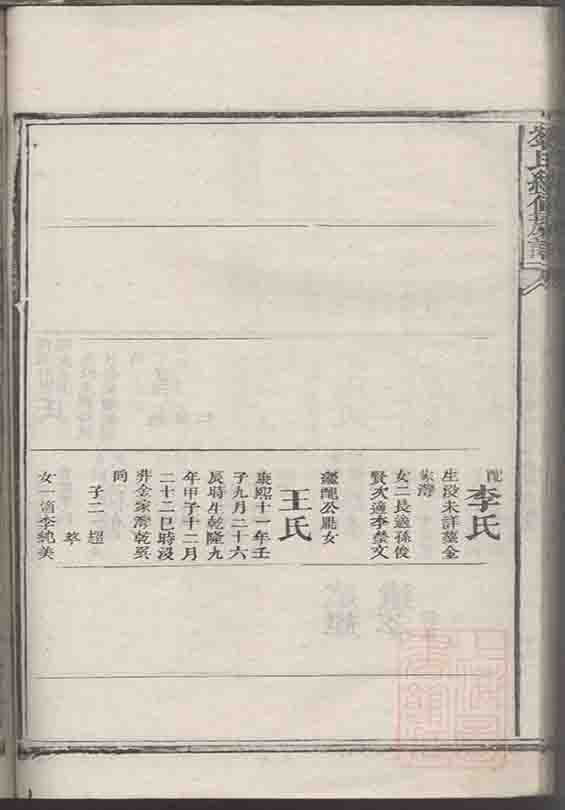 氏續修族譜
配李氏
生没未詳墓金
家灣
女二長適孫俊
賢次適李
文
繼配公
女
王氏
康熙十一年壬
子九月二十六
辰時生乾隆九
年甲子十二月
二十二巳時没
葬金家灣乾
向
子二
超
女一適李純美